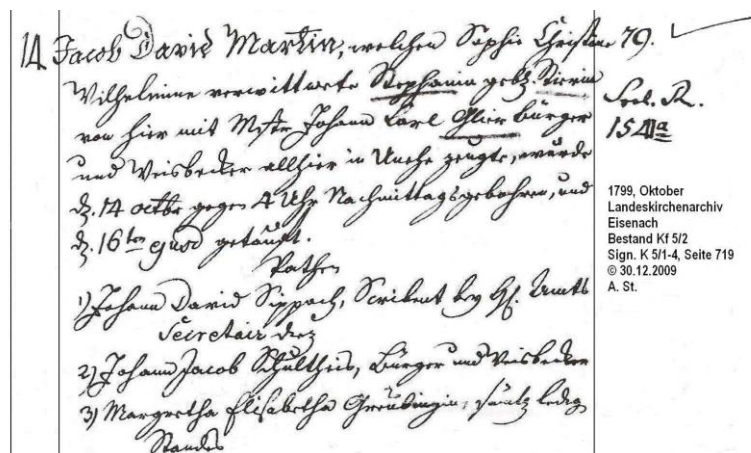 14. Jacob David Martin, welchen Sophie Christine 79.
Wilhelmine verwittwete Stephanin geb. Stierin
von hier mit Mstr Johann Carl Glier Bürger
und Weisbecker allhier in Unehe zeugte, wurde
d. 14 octbr gegen 4 Uhr Nachmittags gebohren, und
d. 16ten ejusd getauft.
Pathen
1) Johann David Sippach, Scribent bey H. Amts
Secretair
2) Johann Jacob Schultheis, Bürger und Weisbecker
3) Margretha Elisabetha ledig
Standes
R.
154a
1799, Oktober
Landeskirchenarchiv
Eisenach
Bestand Kf 5/2
Sign. K 5/1-4, Seite 719
© 30.12.2009
A. St.